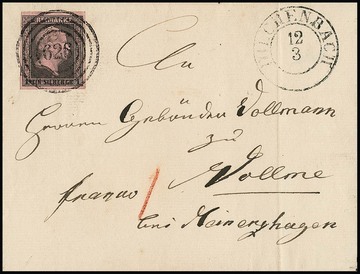 FREIMARKE
1628
EIN SILBERGR.
HILCHENBACH
12
3
An
Herren Gebrüder Vollmann
zu
Vollme
franco
bei Meinerzhagen